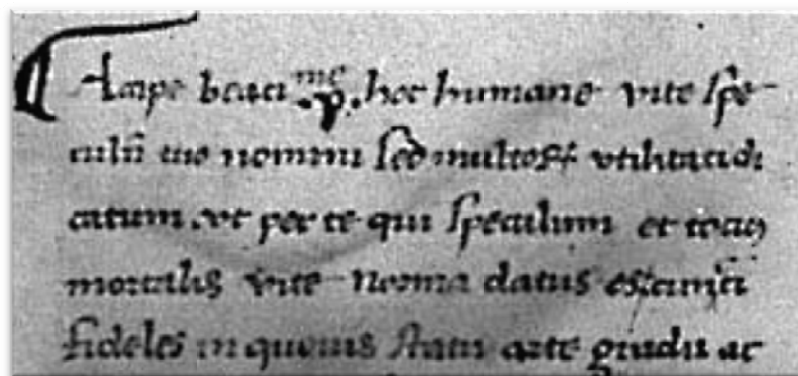 Accipe beatime .p. hoc humane vite spe-
culū tuo nomini sed multoꝝ vtilitati di
catum .vt per te qui speculum et toci9
mortalis vite norma datus es: cuncti
fideles in quouis statu arte gradu ac